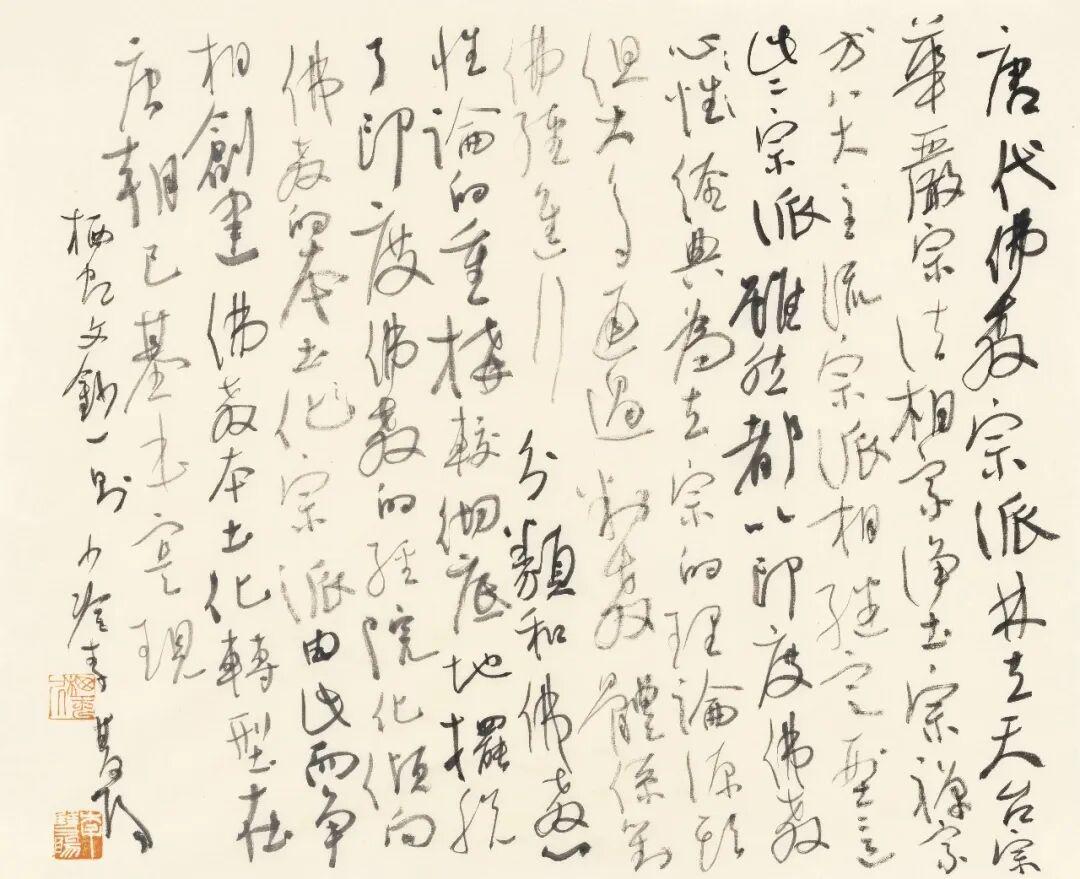 唐代佛教宗派林立天台宗
華嚴宗法相宗淨土宗禪宗
等八大主流宗派相繼定型
此二宗派雖然都以印度佛教
心性經典為立宗的理論源頭
但大多通過判教體系對
佛經進行分類和佛教心
性論的重構較徹底地擺脫
了印度佛教的經院化傾向
佛教的本土化宗派由此而爭
相創建佛教本土化轉型在
唐朝已基本實現
栖霞文鈔一則